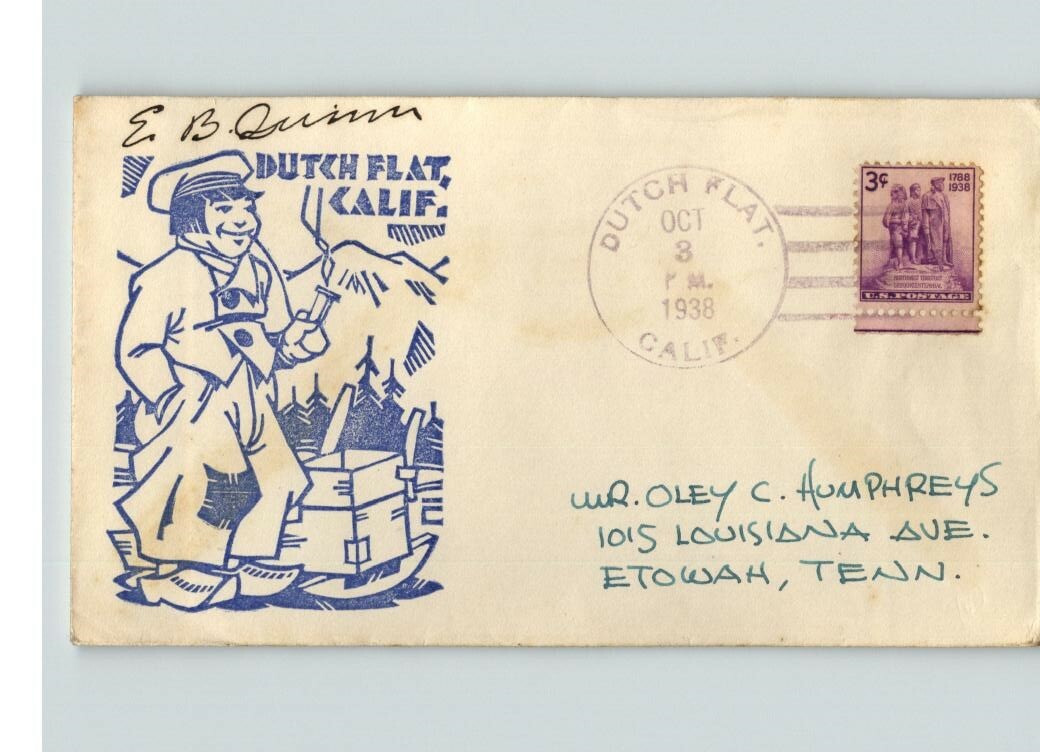 E. B. Quinn
DUTCH FLAT,
CALIF.
DUTCH FLAT.
OCT
3
P.M.
1938
CALIF.
3¢
1788
1938
NORTHWEST TERRITORY
SESQUICENTENNIAL
U.S. POSTAGE
MR. OLEY C. HUMPHREYS
1015 LOUISIANA AVE.
ETOWAH, TENN.